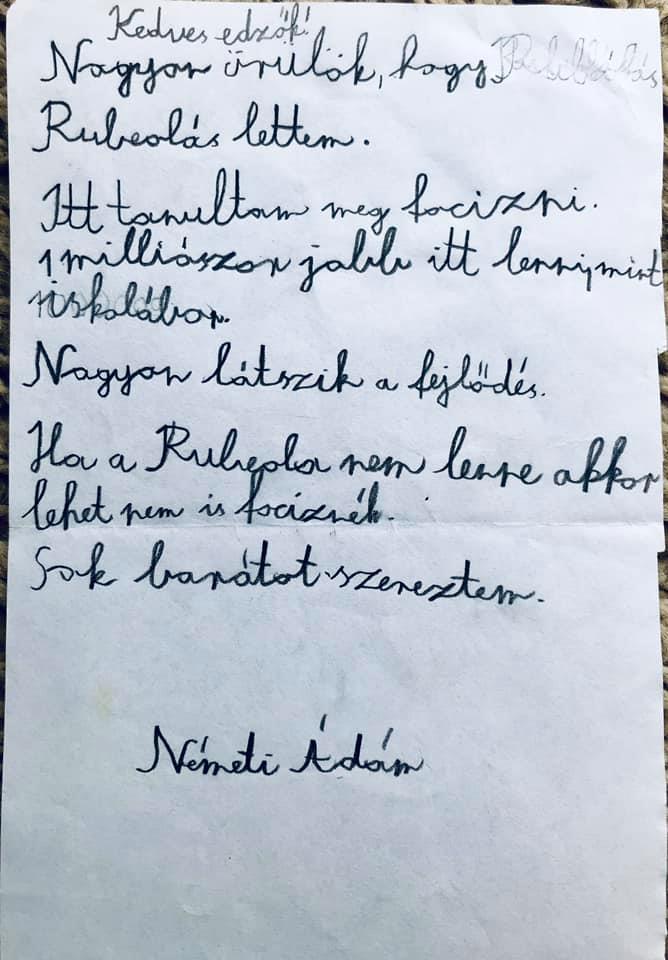 Kedves edzők!
Nagyon örülök, hogy
Rubeolás lettem.
Itt tanultam meg focizni.
1 milliószor jobb itt lenni, mint
iskolában.
Nagyon látszik a fejlődés.
Ha a Rubeola nem lenne akkor
lehet nem is fociznék.
Sok barátot szereztem.
Németi Ádám